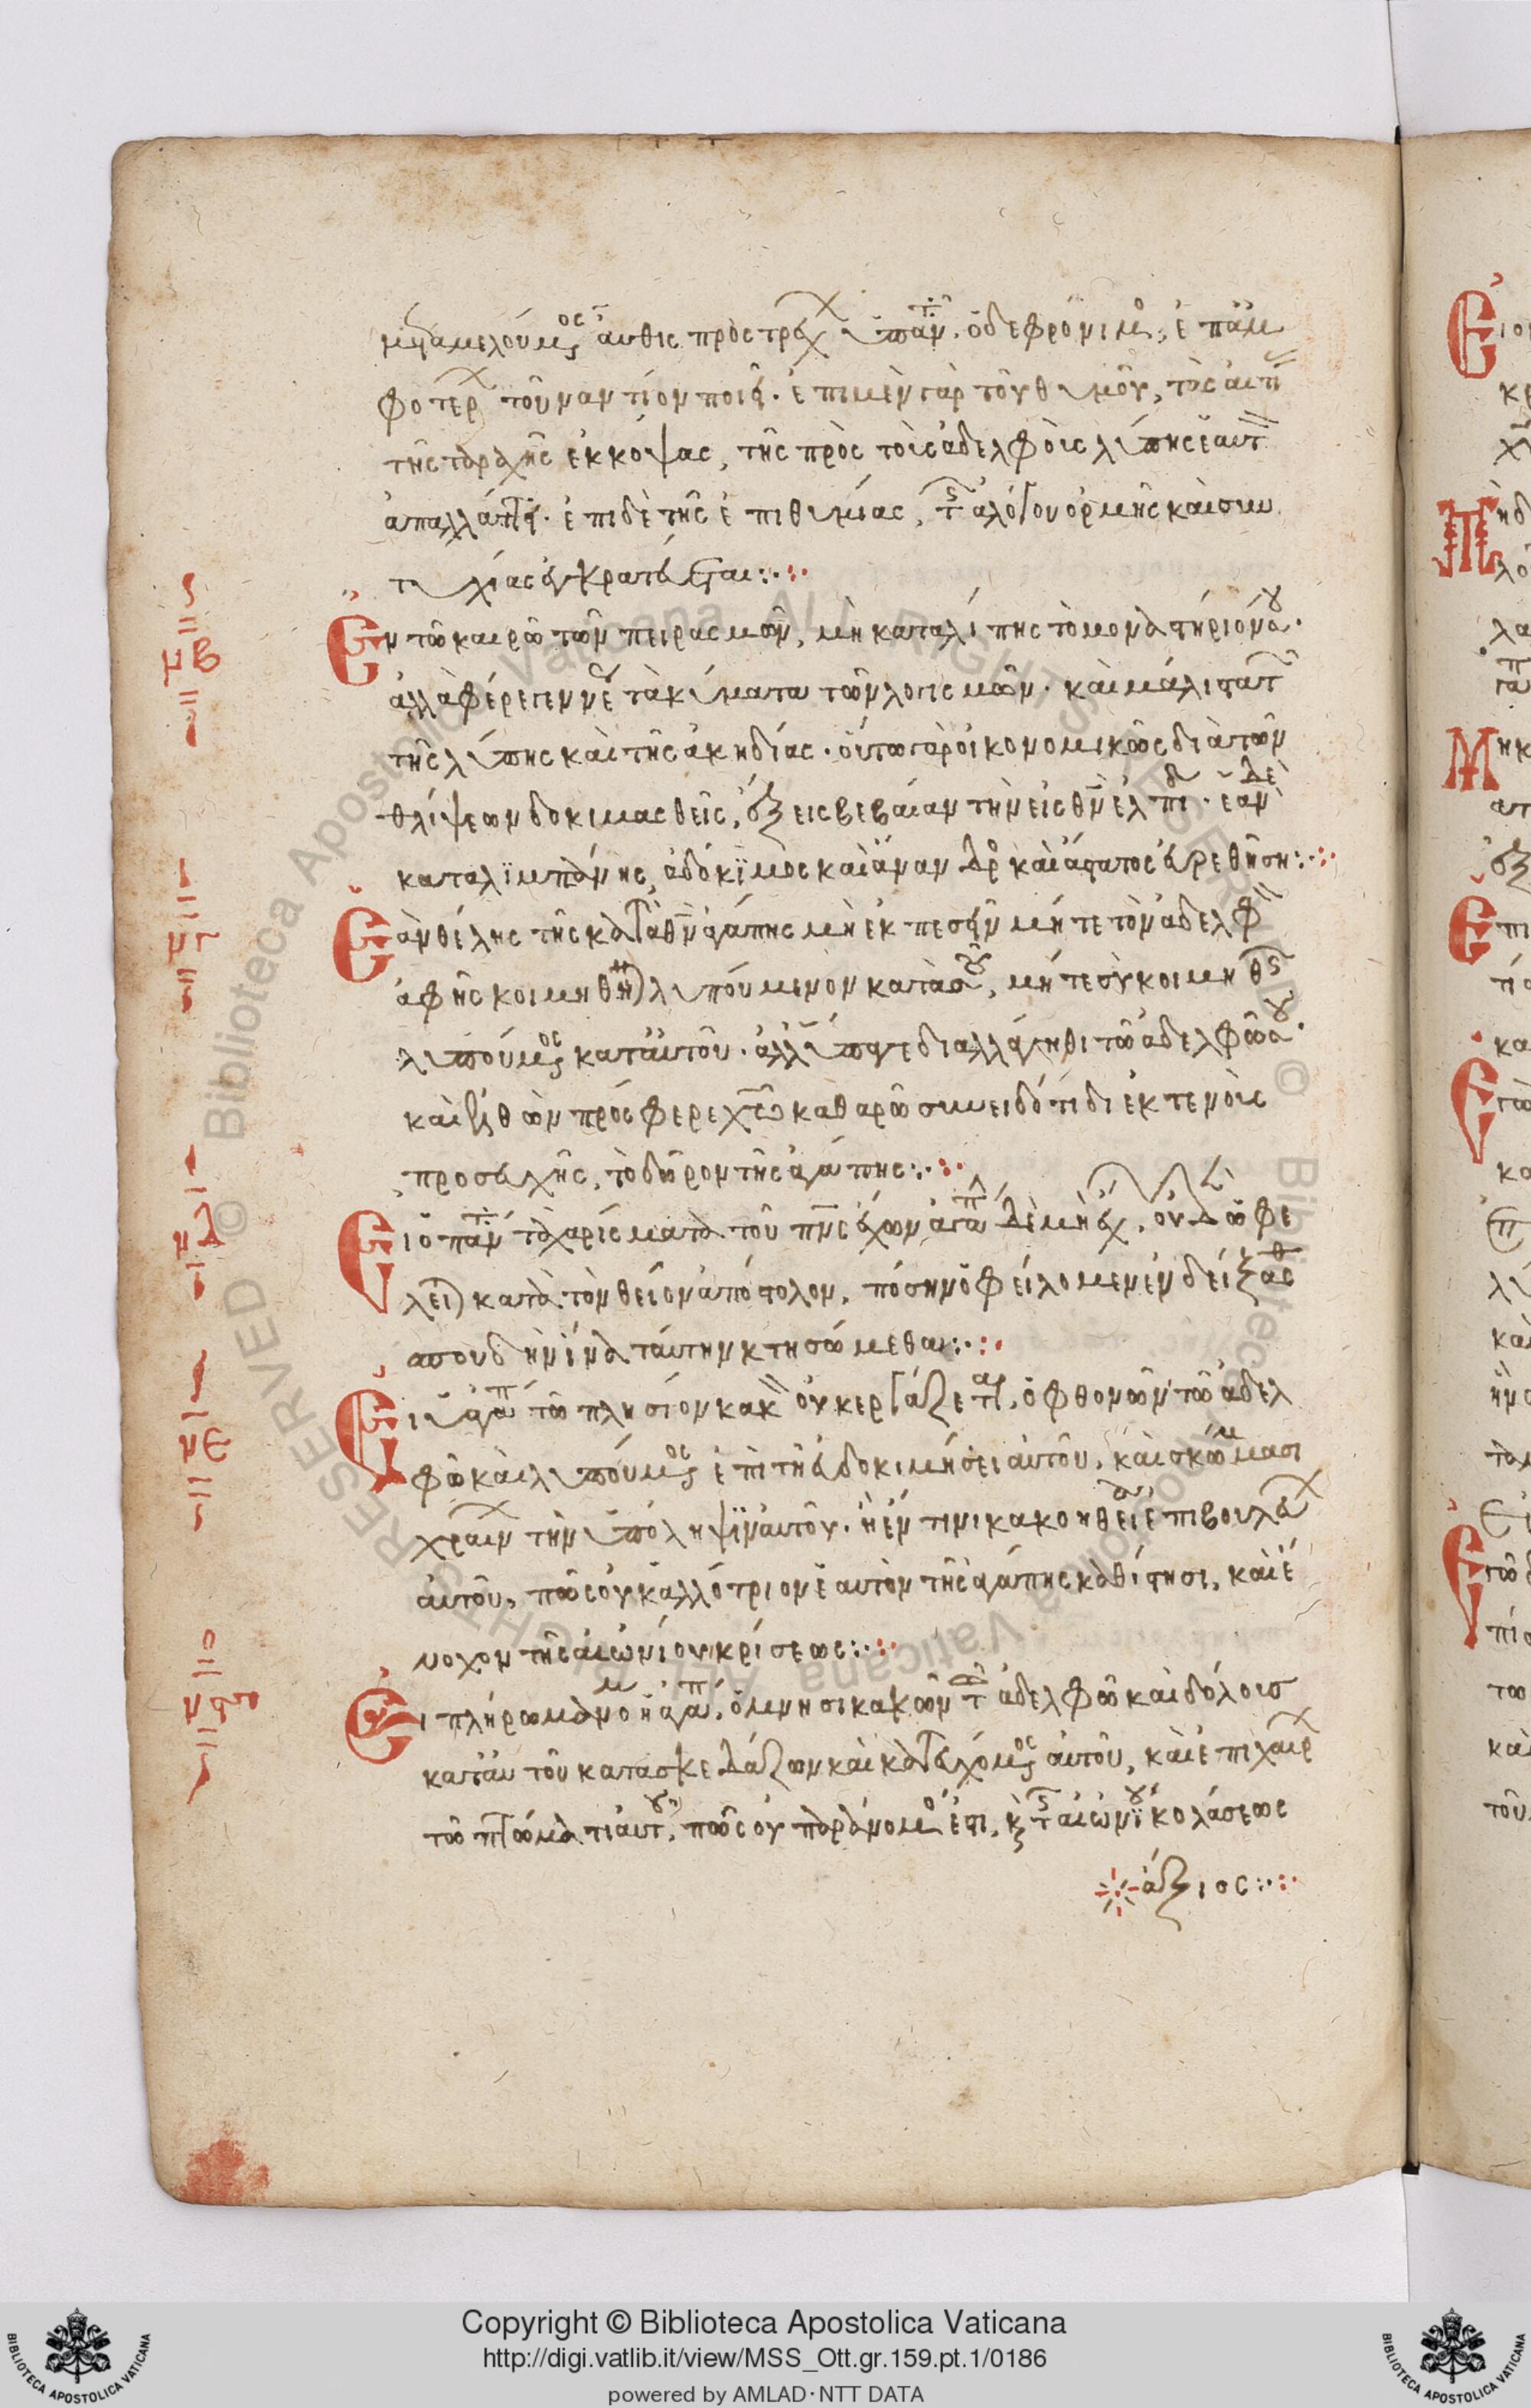 μεταμελούμενος αὖθις πρὸς τρυχ ὑπαν. ὁ δὲ φρόνιμος, ἐπ' ἀμ
φοτέρ τοὐναντίον ποιεῖ. ἐπὶ μὲν γὰρ τοῦ θυμοῦ, τὰς αἰτί
τῆς ταραχῆς ἐκκόψας, τῆς πρὸς τοὺς ἀδελφοὺς λύπης ἑαυτ
ἀπαλλάττει. ἐπὶ δὲ τῆς ἐπιθυμίας, τῆς ἀλόγου ὁρμῆς καὶ συν
τυχίας ἐγκρατεύεται
Ἐν τῶ καιρῶ τῶν πειρασμῶν, μὴ καταλίπης τὸ μοναστήριόν σου.
ἀλλὰ φέρε γενν τὰ κύματα τῶν λογισμῶν. καὶ μάλιστα τ
τῆς λύπης καὶ τῆς ἀκηδίας. οὕτω γὰρ οἰκονομικῶς διὰ τῶν
θλίψεων δοκιμασθεὶς, ἕξεις βεβαίαν τὴν εἰς θν ἐλπίδ. ἐὰν δὲ
καταλϊμπάνης, ἀδόκϊμος καὶ ἄνανδρος καὶ ἄστατος εὑρεθήση
Ἐὰν θέλης τῆς κατὰ θν ἀγάπης μὴ ἐκπεσεῖν μήτε τὸν ἀδελφ
ἀφῆς κοιμηθῆν λυπούμενον κατὰ σοῦ, μήτε σὺ κοιμηθῆς
λυπούμενος κατ' αὐτοῦ. ἀλλ' ὕπαγε διαλλάγηθι τῶ ἀδελφῶ σου.
καὶ ἐλθὼν πρόσφερε χω καθαρῶ συνειδότι δι' ἐκτενοῦς
προσευχῆς, τὸ δῶρον τῆς ἀγάπης
Εἰ ὁ πάντ τὰ χαρίσματα τοῦ πνς ἔχων ἀγάπ δὲ μὴ ἔχ, οὐδὲν ὠφε
λεῖ κατὰ τὸν θεῖον ἀπόστολον, πόσην ὀφείλομεν ἐνδείξασθ
σπουδὴν ἵνα ταύτην κτησώμεθα
Εἰ ἡ ἀγάπ τῶ πλησίον κακ οὐκ ἐργάζεται, ὁ φθονῶν τῶ ἀδελ
φῶ καὶ λυπούμενος ἐπὶ τῆ εὐδοκιμήσει αὐτοῦ, καὶ σκώμμασι
χραίν τὴν ὑπόληψϊν αὐτοῦ. ἢ ἔν τινι κακοηθεία ἐπιβουλεύ
αὐτοῦ, πῶς οὐκ ἀλλότριον ἑαυτὸν τῆς ἀγάπης καθίστησι, καὶ ἔ
νοχον τῆς αἰωνίου κρίσεως
Εἰ πλήρωμα νόμ ἡ ἀγάπ, ὁ μνησικακῶν τῶ ἀδελφῶ καὶ δόλους
κατ' αὐτοῦ κατασκευάζων καὶ κατευχόμενος αὐτοῦ, καὶ ἐπιχαίρ
τῶ πτώματι αὐτοῦ, πῶς οὐ παράνομος ἐστι, καὶ τῆς αἰωνίου κολάσεως
ἄξιος
Copyright © Biblioteca Apostolica Vaticana
http://digi.vatlib.it/view/MSS_Ott.gr.159.pt.1/0186
powered by AMLAD·NTT DATA